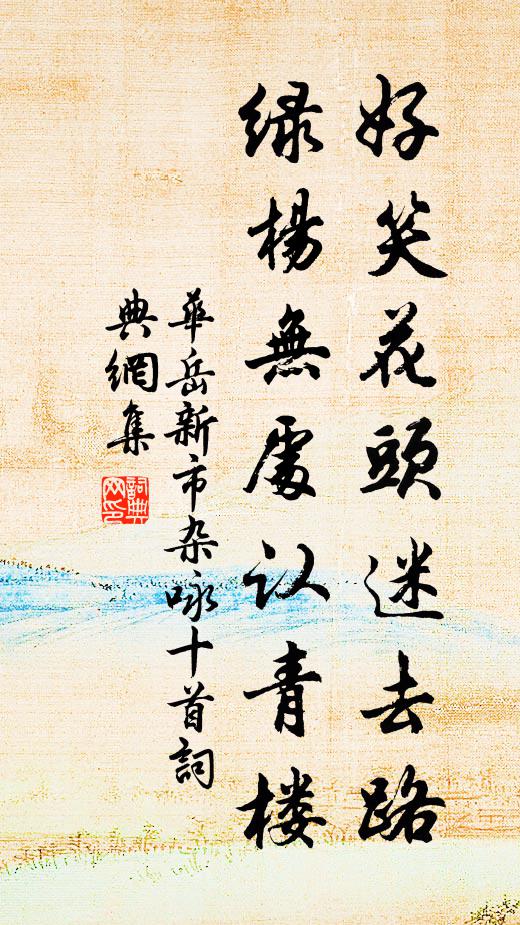 好笑花頭迷去路
绿楊無處认青楼
華岳新市杂咏十首詞
典網集
詞典
网印